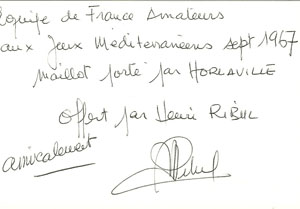 Equipe de France Amateurs
aux Jeux Méditerranéens sept 1967
Maillot porté par HORLAVILLE
Offert par Henri RIBUL
amicalement